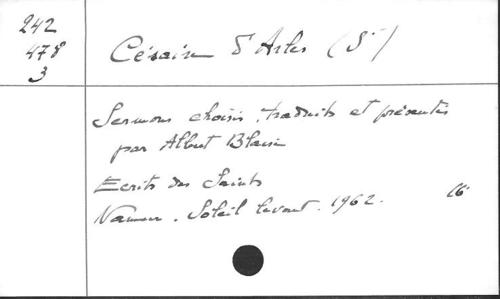 242
478
3
Césaire d'Arles (St)
Sermons choisis, traduits et présentés
par Albert Blaise
Ecrits des Saints
Namur. Soleil levant. 1962. 16°